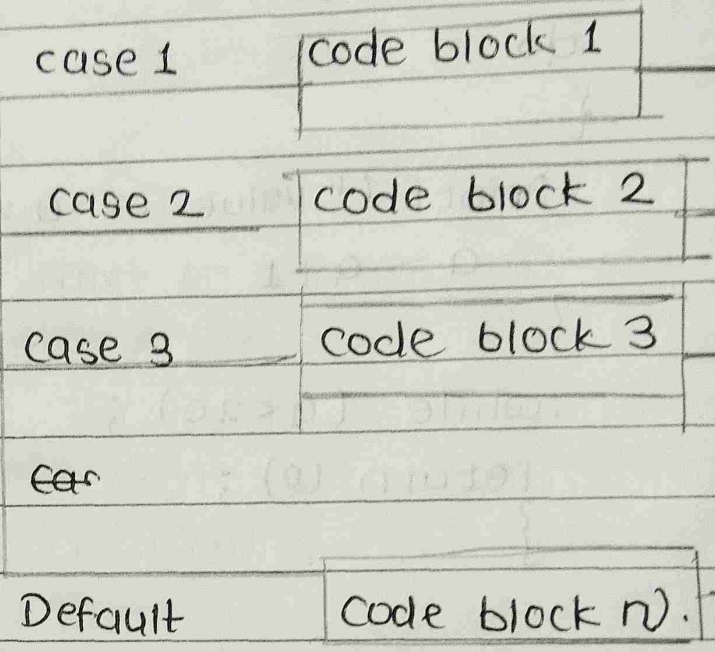 case 1 code block 1
case 2 code block 2
case 3 code block 3
Default code block n.